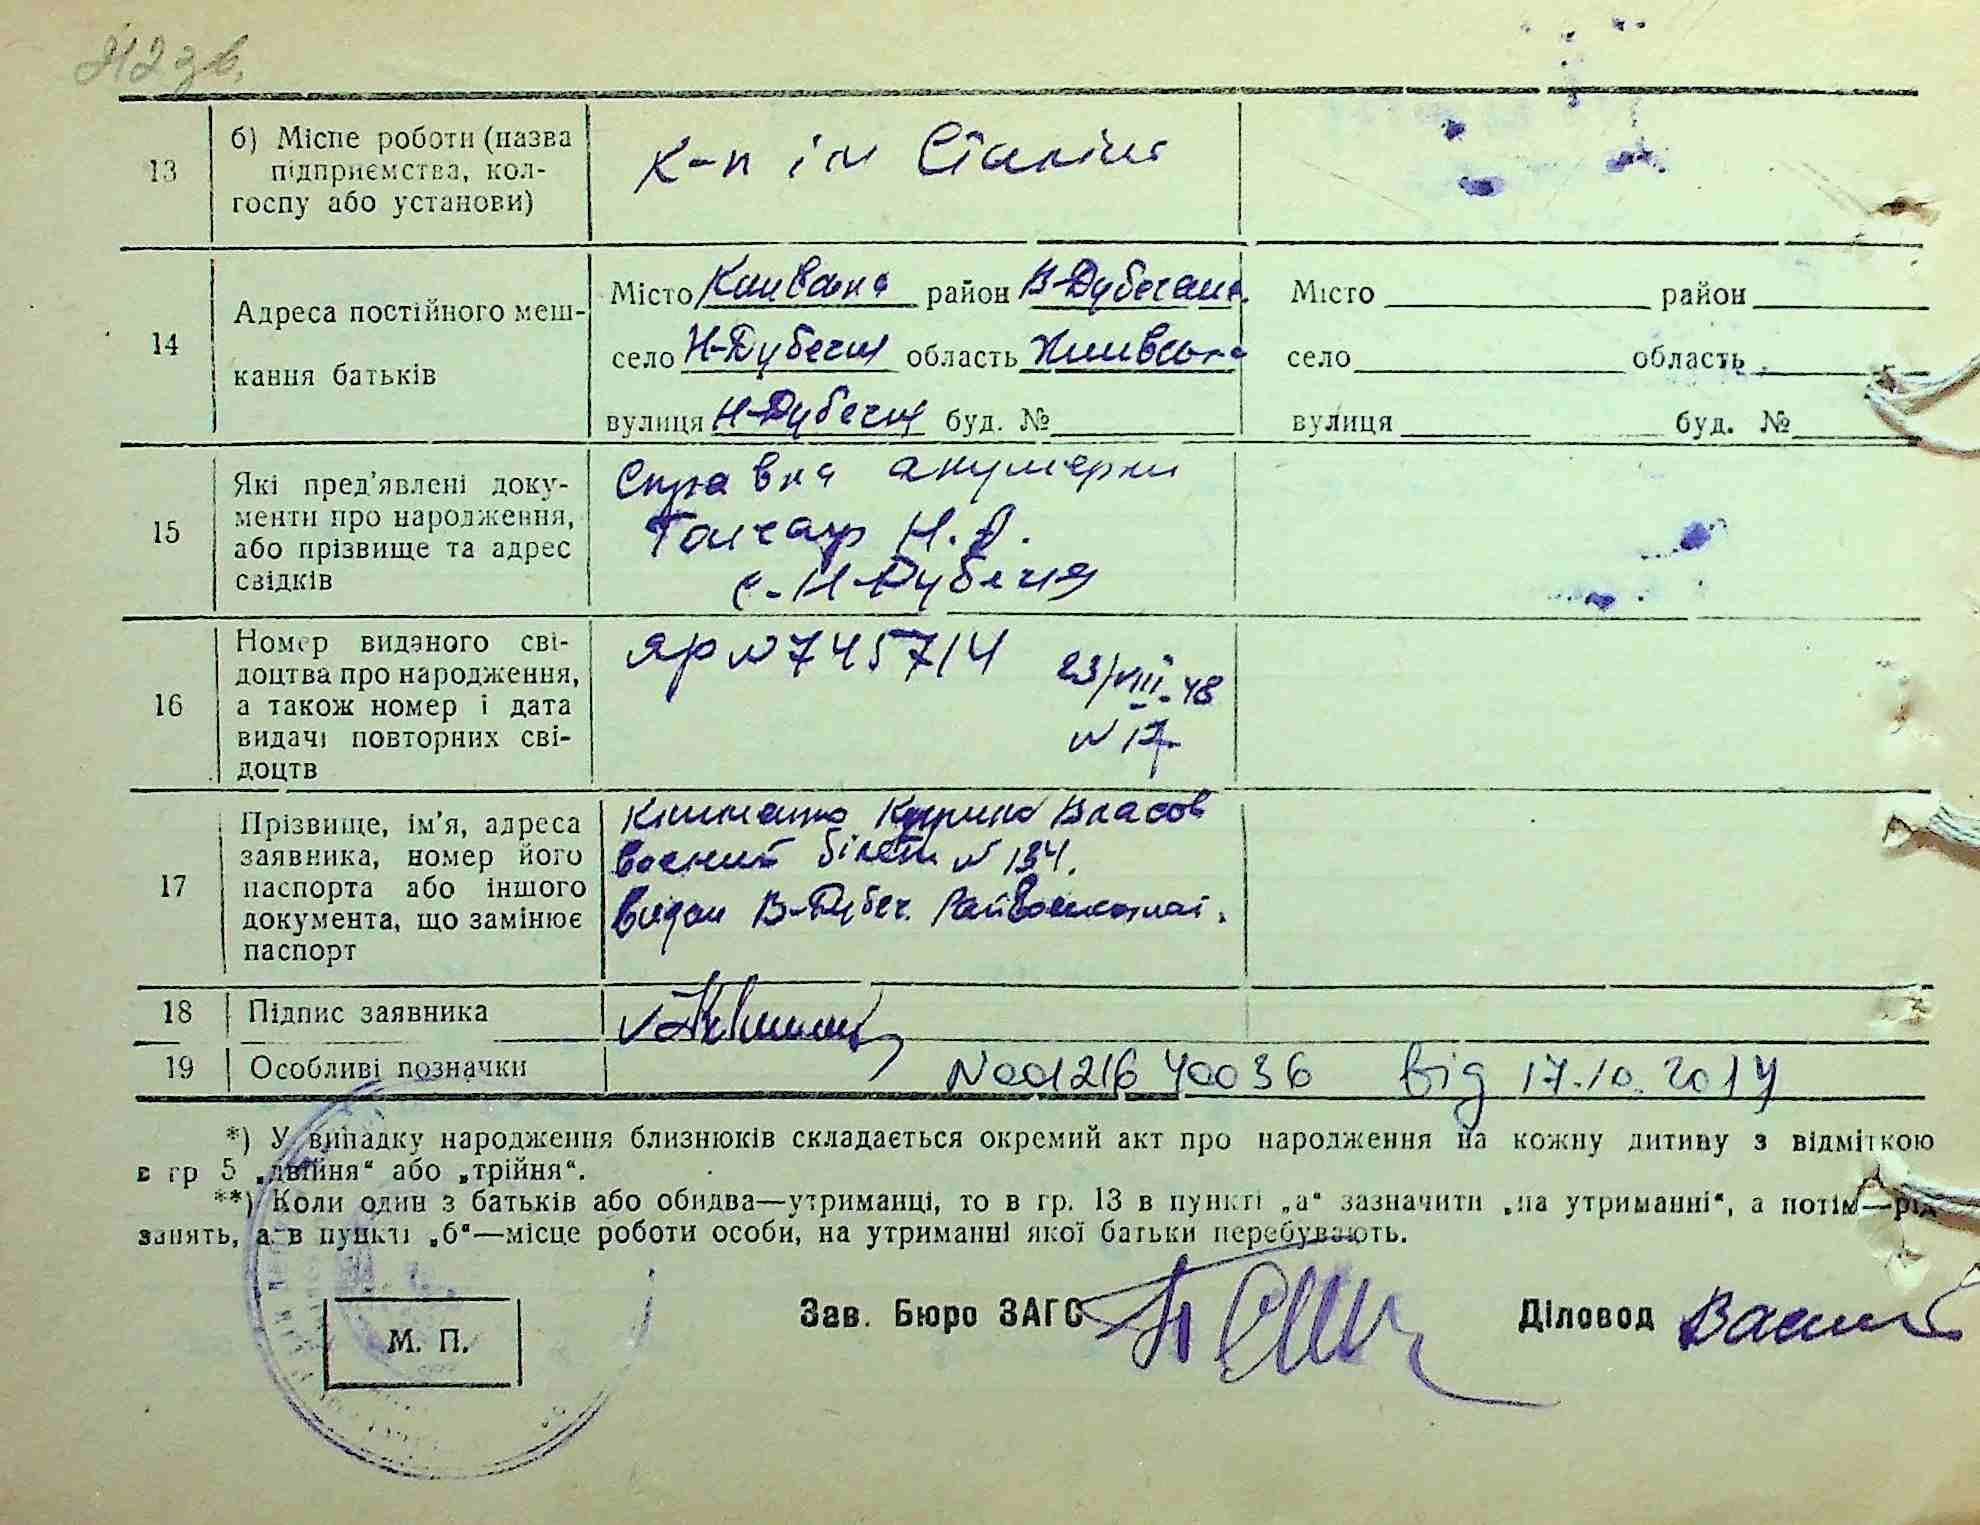 212 зв.
13
б) Місце роботи (назва підприємства, колгоспу або установи)
к-п ім Сталіна
14
Адреса постійного мешкання батьків
Місто район В-Дубечан.
село Н-Дубечня область Київська
вулиця Н-Дубечня буд. №
Місто район
село область
вулиця буд. №
15
Які пред'явлені документи про народження, або прізвище та адрес свідків
Справка акушерки
Гончар Н.Д.
с. Н-Дубечня
16
Номер виданого свідоцтва про народження, а також номер і дата видачі повторних свідоцтв
ЯР № 745714
23/VIII-48
№ 17
17
Прізвище, ім'я, адреса заявника, номер його паспорта або іншого документа, що замінює паспорт
Власов
Воєний білет № 134.
Видан В-Дубеч. Райвоєнкомат.
18
Підпис заявника
19
Особливі позначки
N00121640036 від 17.10.2014
*) У випадку народження близнюків складається окремий акт про народження на кожну дитину з відміткою
в гр 5 „двійня“ або „трійня“.
**) Коли один з батьків або обидва—утриманці, то в гр. 13 в пункті „а“ зазначити „на утриманні“, а потім—рід
занять, а в пункті „б“—місце роботи особи, на утриманні якої батьки перебувають.
М. П.
Зав. Бюро ЗАГС
Діловод